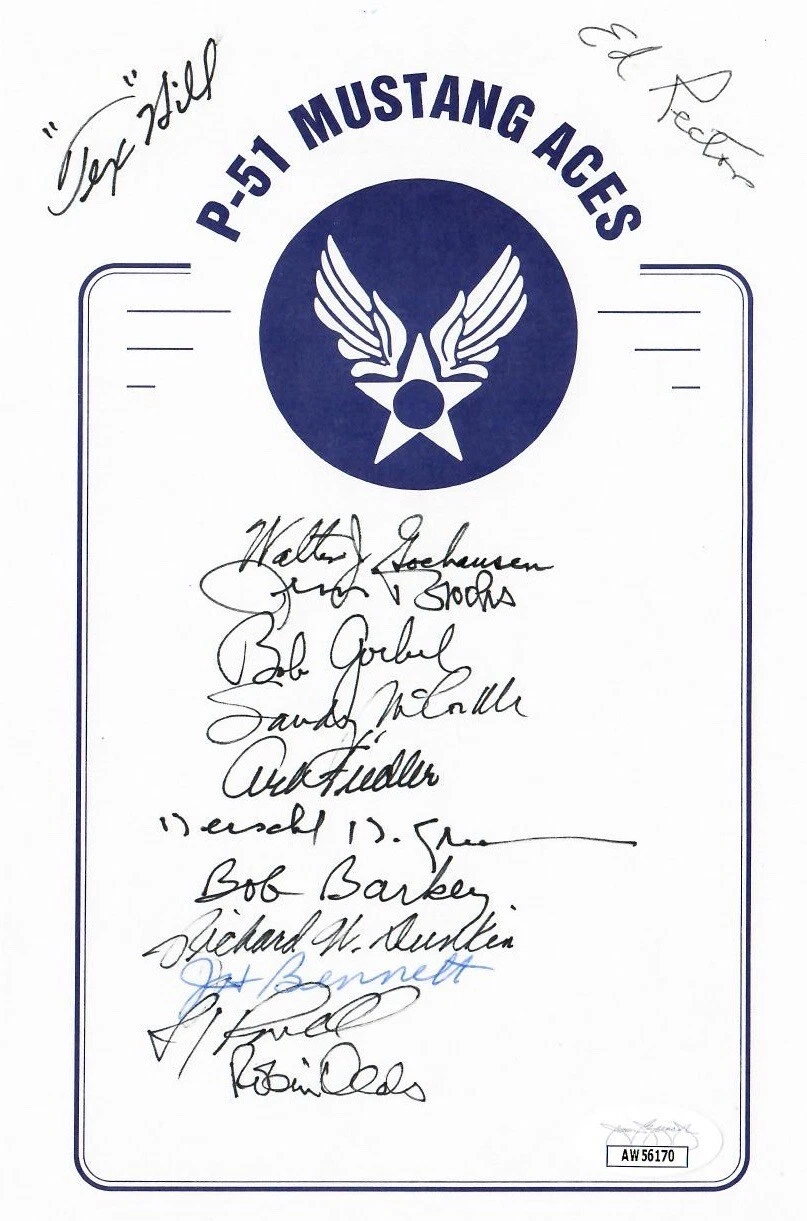 "Tex" Hill
Ed Rector
P-51 MUSTANG ACES
Walter J. Goehausen
Jim Brooks
Bob Goebel
Sandy McCorkle
Art Fiedler
Herschel H. Green
Bob Barkey
Richard W. Dunkin
JH Bennett
Robin Olds
AW56170